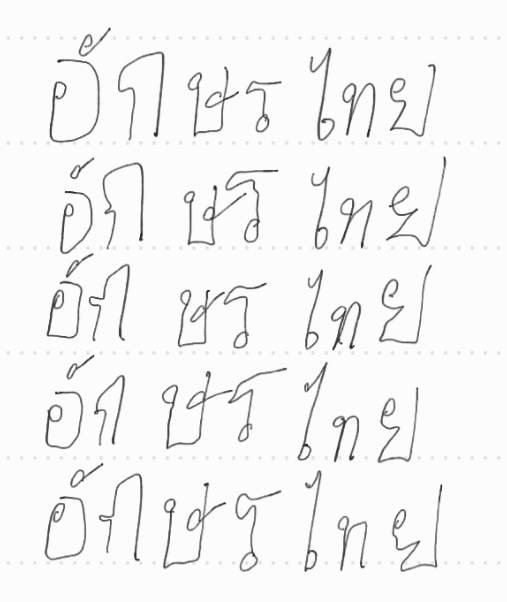 อักษรไทย
อักษรไทย
อักษรไทย
อักษรไทย
อักษรไทย